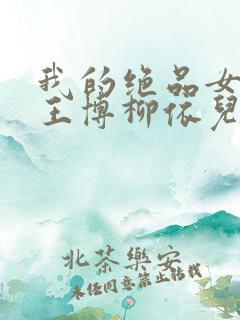 我的绝品女
王博柳依兒
北茶樂安
未经同意禁止转载